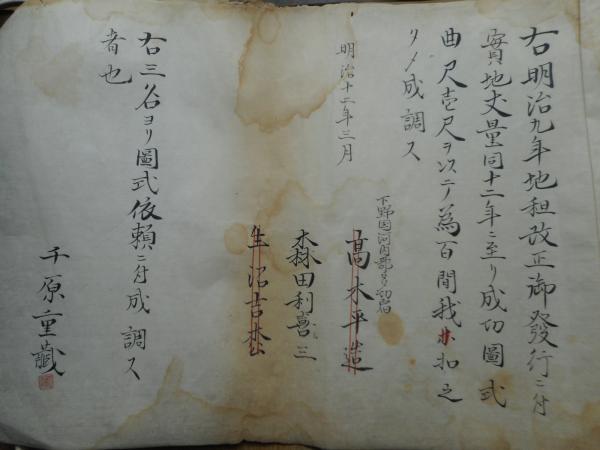 右明治九年地租改正御發行ニ付
實地丈量同十二年ニ至リ成功圖式
曲尺壱尺ヲ以テ為百間我 扣之
リ〆成調ス
明治十二年三月
下野国河内郡
高木平造
森田利喜三
生沼吉松
右三名ヨリ圖式依頼ニ付成調ス
者也
千原重藏